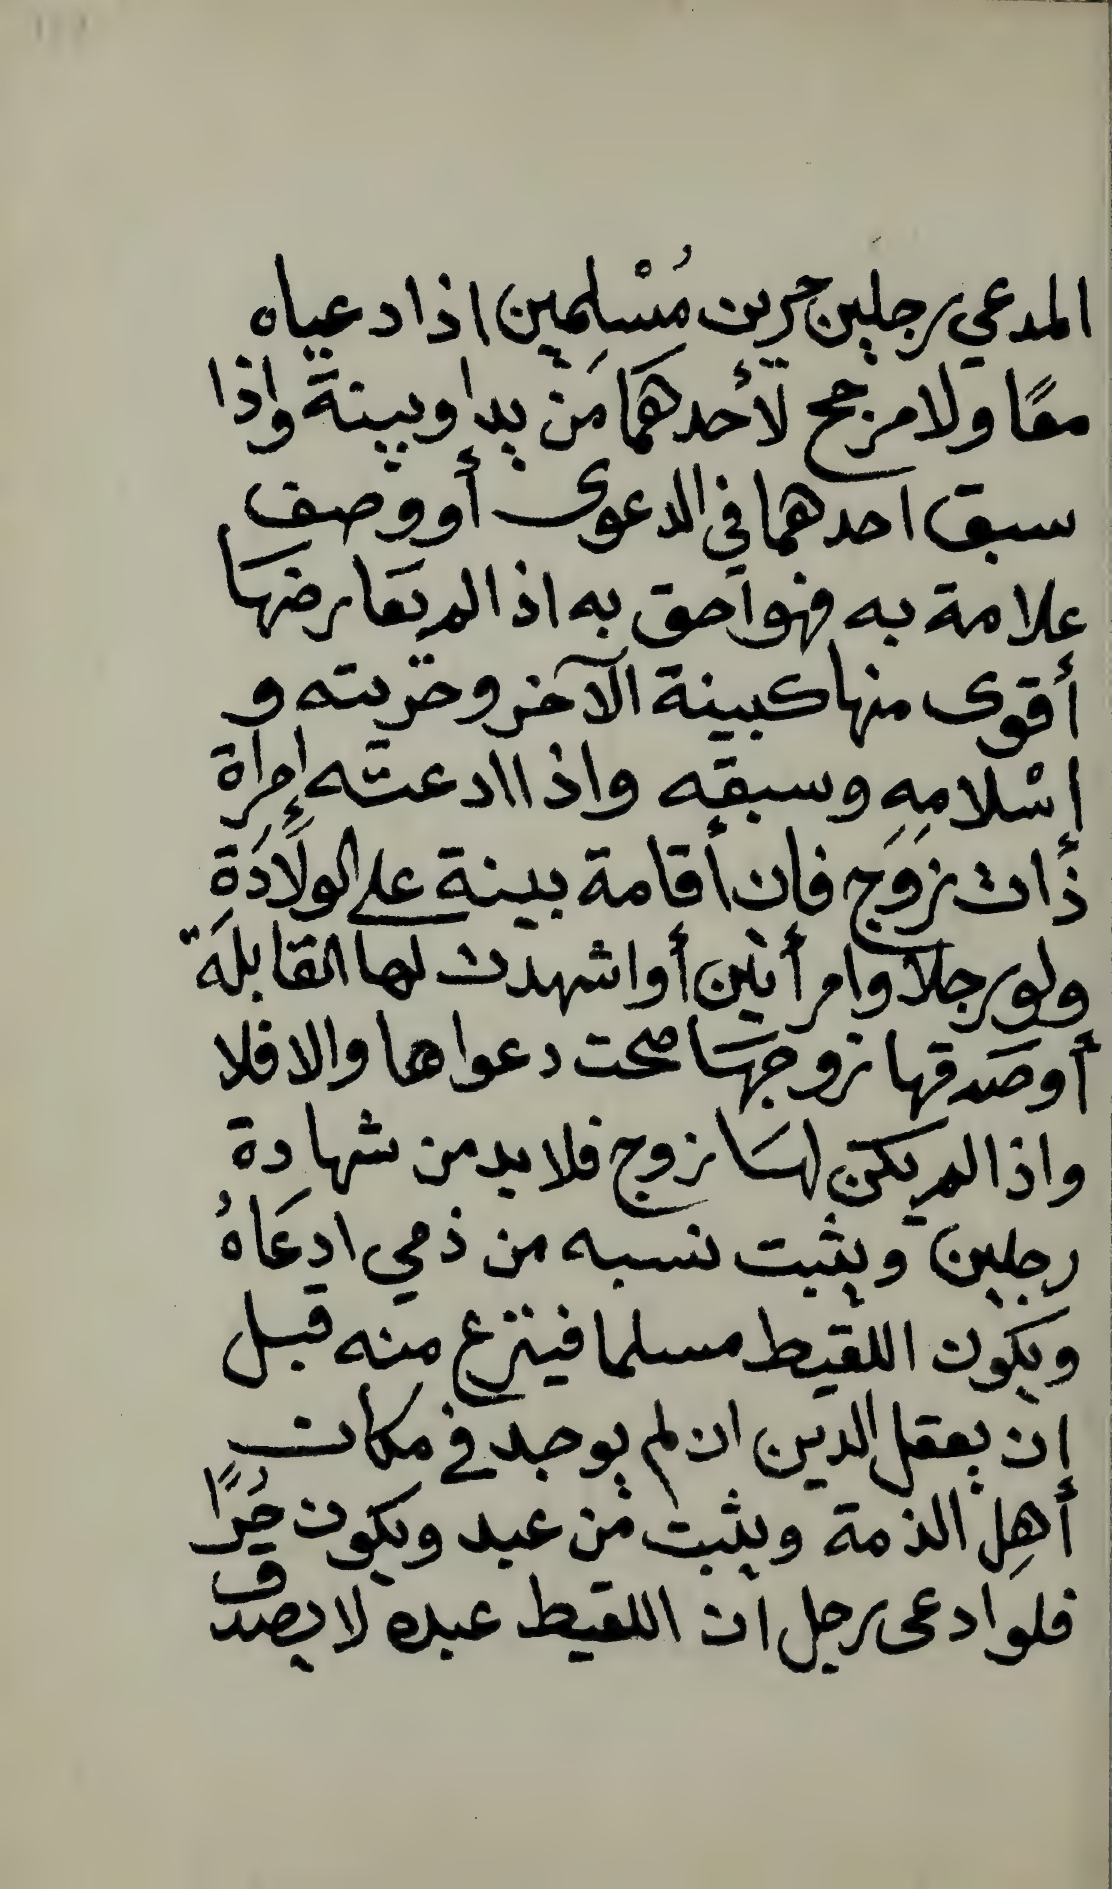 المدعي رجلين حرين مُسْلِمين اذا ادعياه
معًا ولا مرجح لأحدهما مَن يد او بينة واذا
سبق احدهما في الدعوى أو وصف
علامة به فهو أحق به اذا لم يعارضها
أقوى منها كبينة الآخر وحريته و
إسْلامِهِ وسبقه واذا اادعته إمرأة
ذَات زَوَج فان أقامة بينة على الولَادَة
ولو رجلا وامرأتين أوا شهدت لها القابلَة
أو صَدقها زوجهَا صحت دعواها والا فلا
واذا لم يكن لهَا زوج فلا بد من شهادة
رجلين ويثبت نسبه من ذمي ادعَاهُ
ويكون اللقيط مسلما فينزع منه قبل
ان يعقل الدين ان لم يوجد في مكان
أهِل الذمة ويثبت مَن عبد ويكون حُرًا
فلو ادعى رجل ان اللقيط عبده لا يصدق